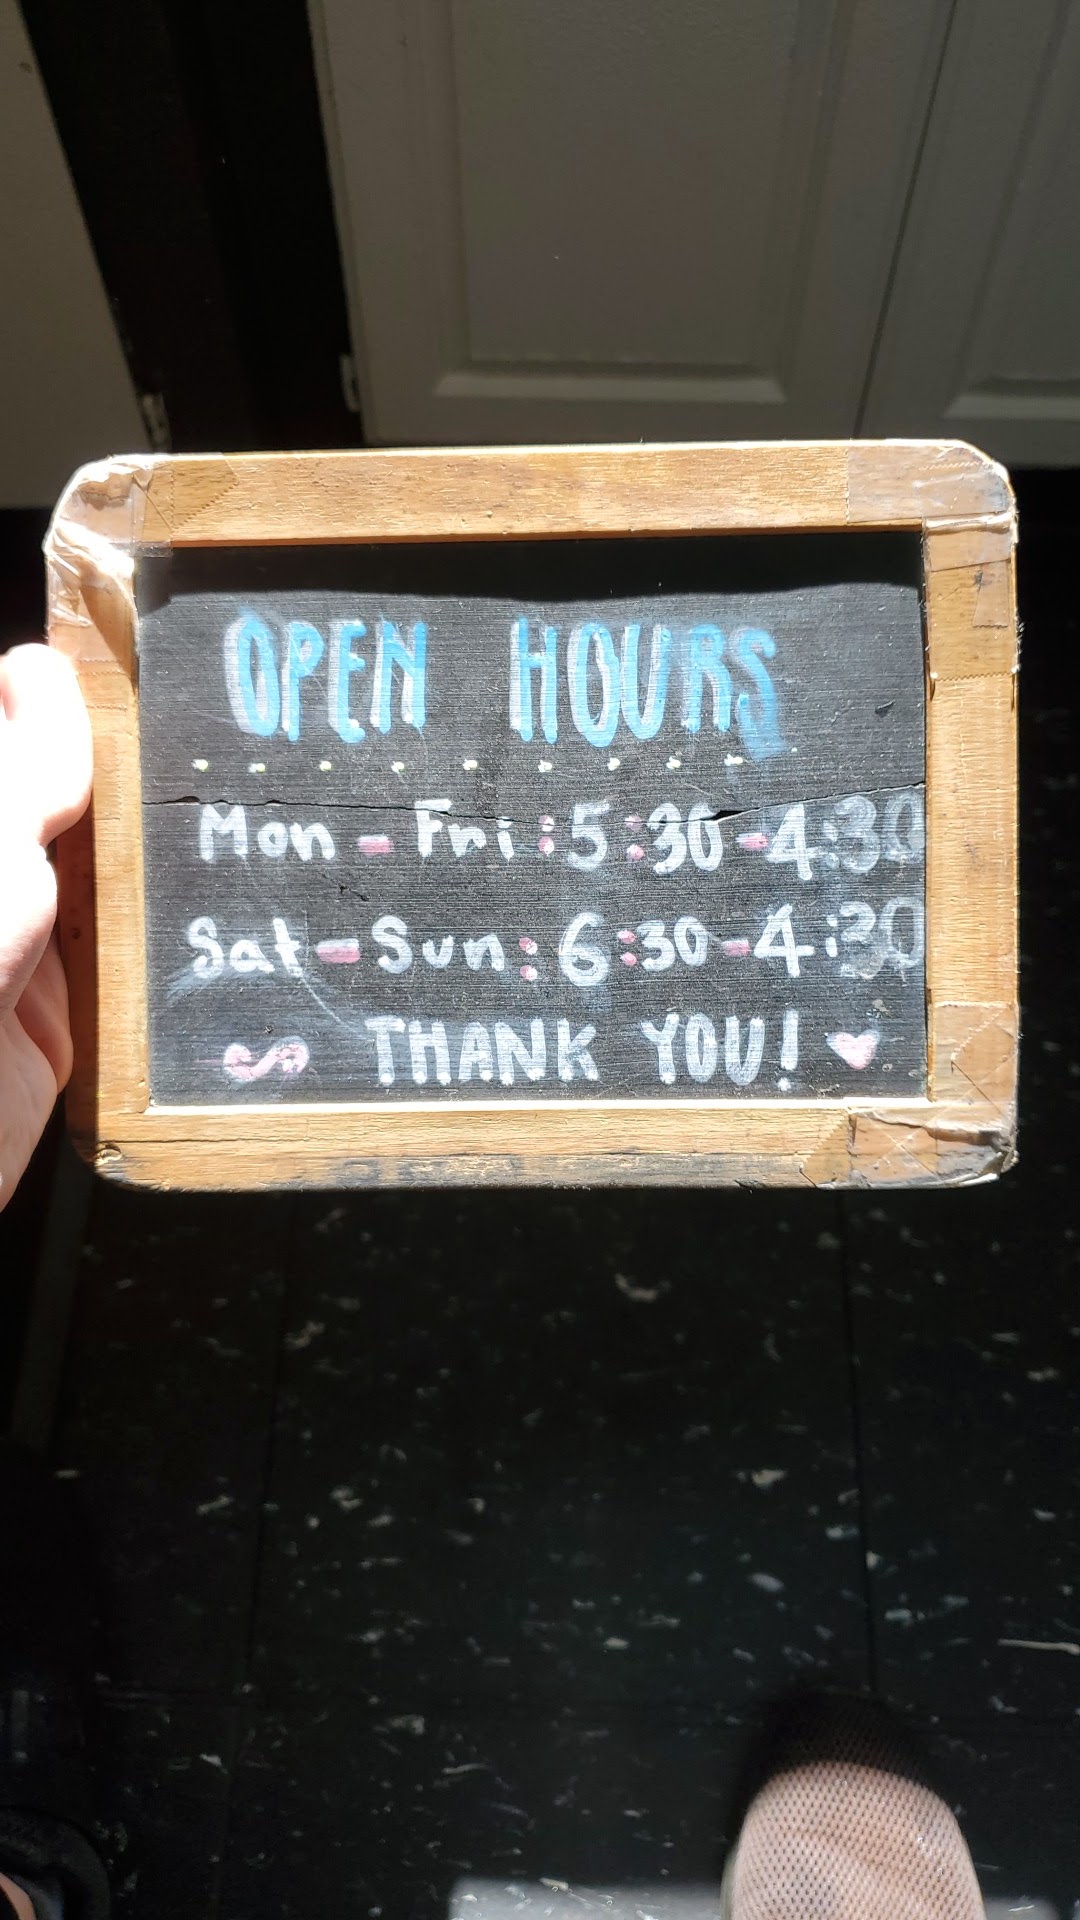 OPEN HOURS
Mon - Fri : 5:30 - 4:30
Sat - Sun : 6:30 - 4:30
THANK YOU!